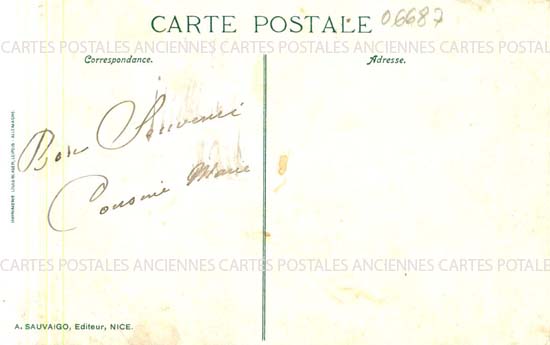 CARTE POSTALE
06687
CARTES POSTALES ANCIENNES CARTES POSTALES ANCIENNES CARTES POSTALES
Correspondance.
Adresse.
Bon Souvenir
Cousine Marie
CARTES POSTALES ANCIENNES CARTES POSTALES ANCIENNES CARTES POTALE
A. SAUVAIGO, Editeur, NICE.